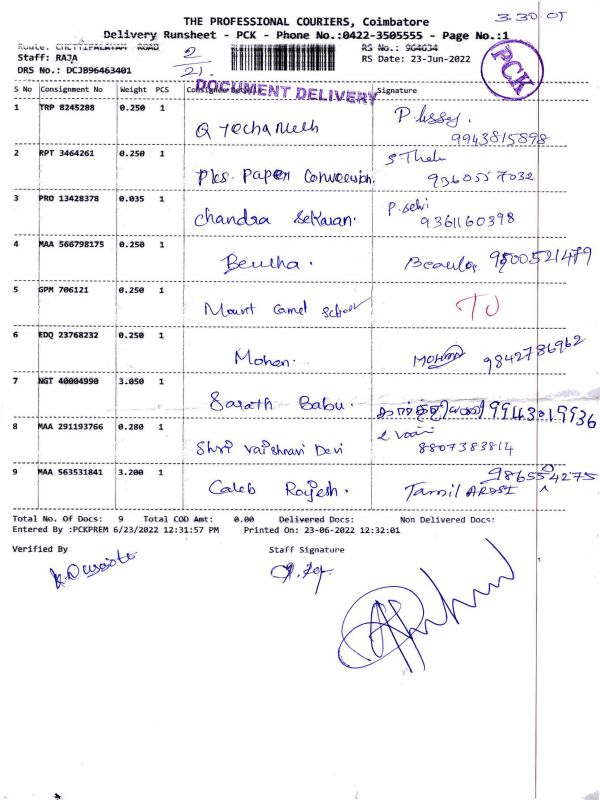 THE PROFESSIONAL COURIERS, Coimbatore
3.30.05
Delivery Runsheet - PCK - Phone No.:0422-3505555 - Page No.:1
Route: CHETTIPALAYAM ROAD RS No.: 964634
Staff: RAJA RS Date: 23-Jun-2022
DRS No.: DCJB96463401
2
21
PCK
DOCUMENT DELIVERY
S No Consignment No Weight PCS Consignee Details Signature
1 TRP 8245288 0.250 1 9943815898
2 RPT 3464261 0.250 1 Pks. Paper Conversion. 9360557032
3 PRO 13428378 0.035 1 Chandra Sekaran. P. Selvi 9361160398
4 MAA 566798175 0.250 1 Beulha. Beaula 9500521479
5 GPM 706121 0.250 1 Mount Camel School TJ
6 EDQ 23768232 0.250 1 Mohan. MOHAN 9842786962
7 NGT 40004990 3.050 1 Sarath Babu. 9943019936
8 MAA 291193766 0.280 1 Shri Vaishnavi Devi 8807383814
9 MAA 563531841 3.200 1 Caleb Rajesh. Tamil ARDSI 9865504275
Total No. Of Docs: 9 Total COD Amt: 0.00 Delivered Docs: Non Delivered Docs:
Entered By :PCKPREM 6/23/2022 12:31:57 PM Printed On: 23-06-2022 12:32:01
Verified By Staff Signature